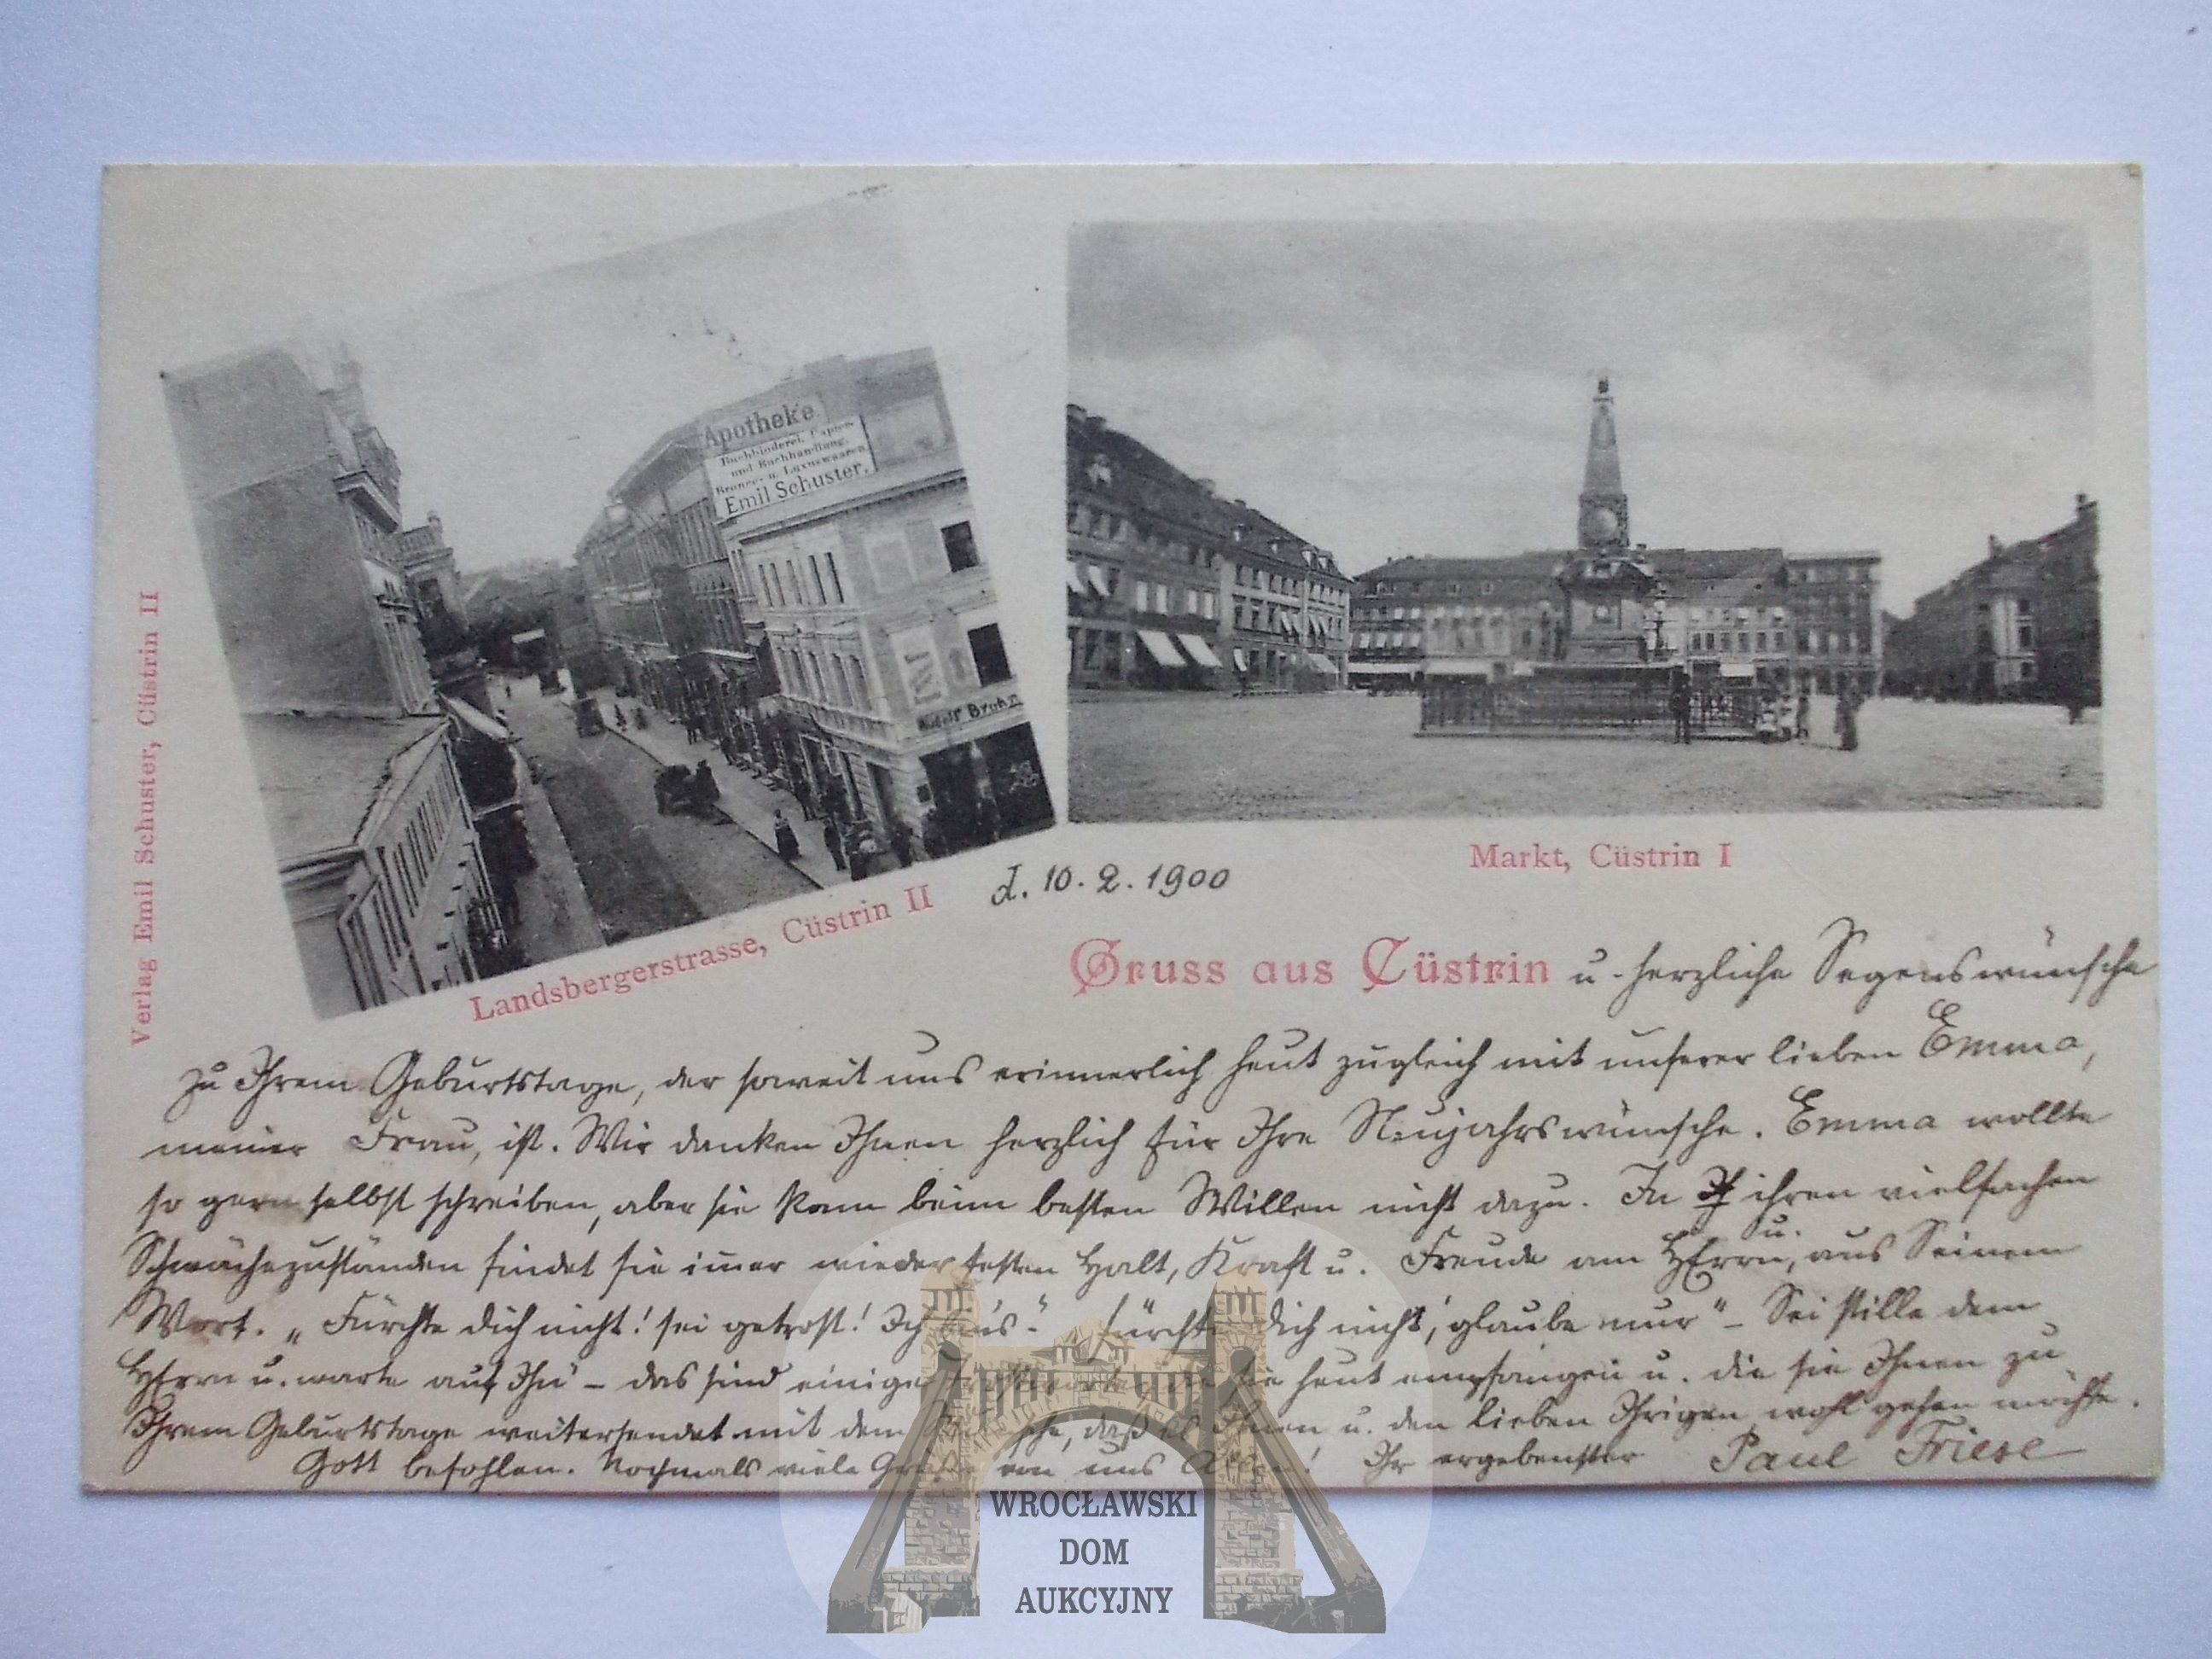 Apotheke
Buchbinderei, Papier-
und Buchhandlung,
Bronce- u. Luxuswaaren
Emil Schuster.
Rudolf Bruhn
Verlag Emil Schuster, Cüstrin II
Landsbergerstrasse, Cüstrin II
Markt, Cüstrin I
d. 10. 2. 1900
Gruss aus Cüstrin u. herzliche Segenswünsche
zu Ihrem Geburtstage, der soweit uns erinnerlich heut zugleich mit unserer lieben Emma,
meiner Frau, ist. Wir danken Ihnen herzlich für Ihre Neujahrswünsche. Emma wollte
so gern selbst schreiben, aber sie kam beim besten Willen nicht dazu. In ihren vielfachen
Schwächezuständen findet sie immer wieder festen Halt, Kraft u. Freude am HErrn, u. aus Seinem
Wort. „Fürchte dich nicht! sei getrost! Ich fürchte dich nicht, glaube nur" – Sei stille dem
HErrn u. warte auf Ihn – das sind einige die sie heut empfangen u. die sie Ihnen zu
Ihrem Geburtstage weitersendet mit dem daß es Ihnen u. den lieben Ihrigen wohl gehen möchte.
Gott befohlen. Nochmals viele Grüße von uns Allen! Ihr ergebenster Paul Friese
WROCŁAWSKI
DOM
AUKCYJNY